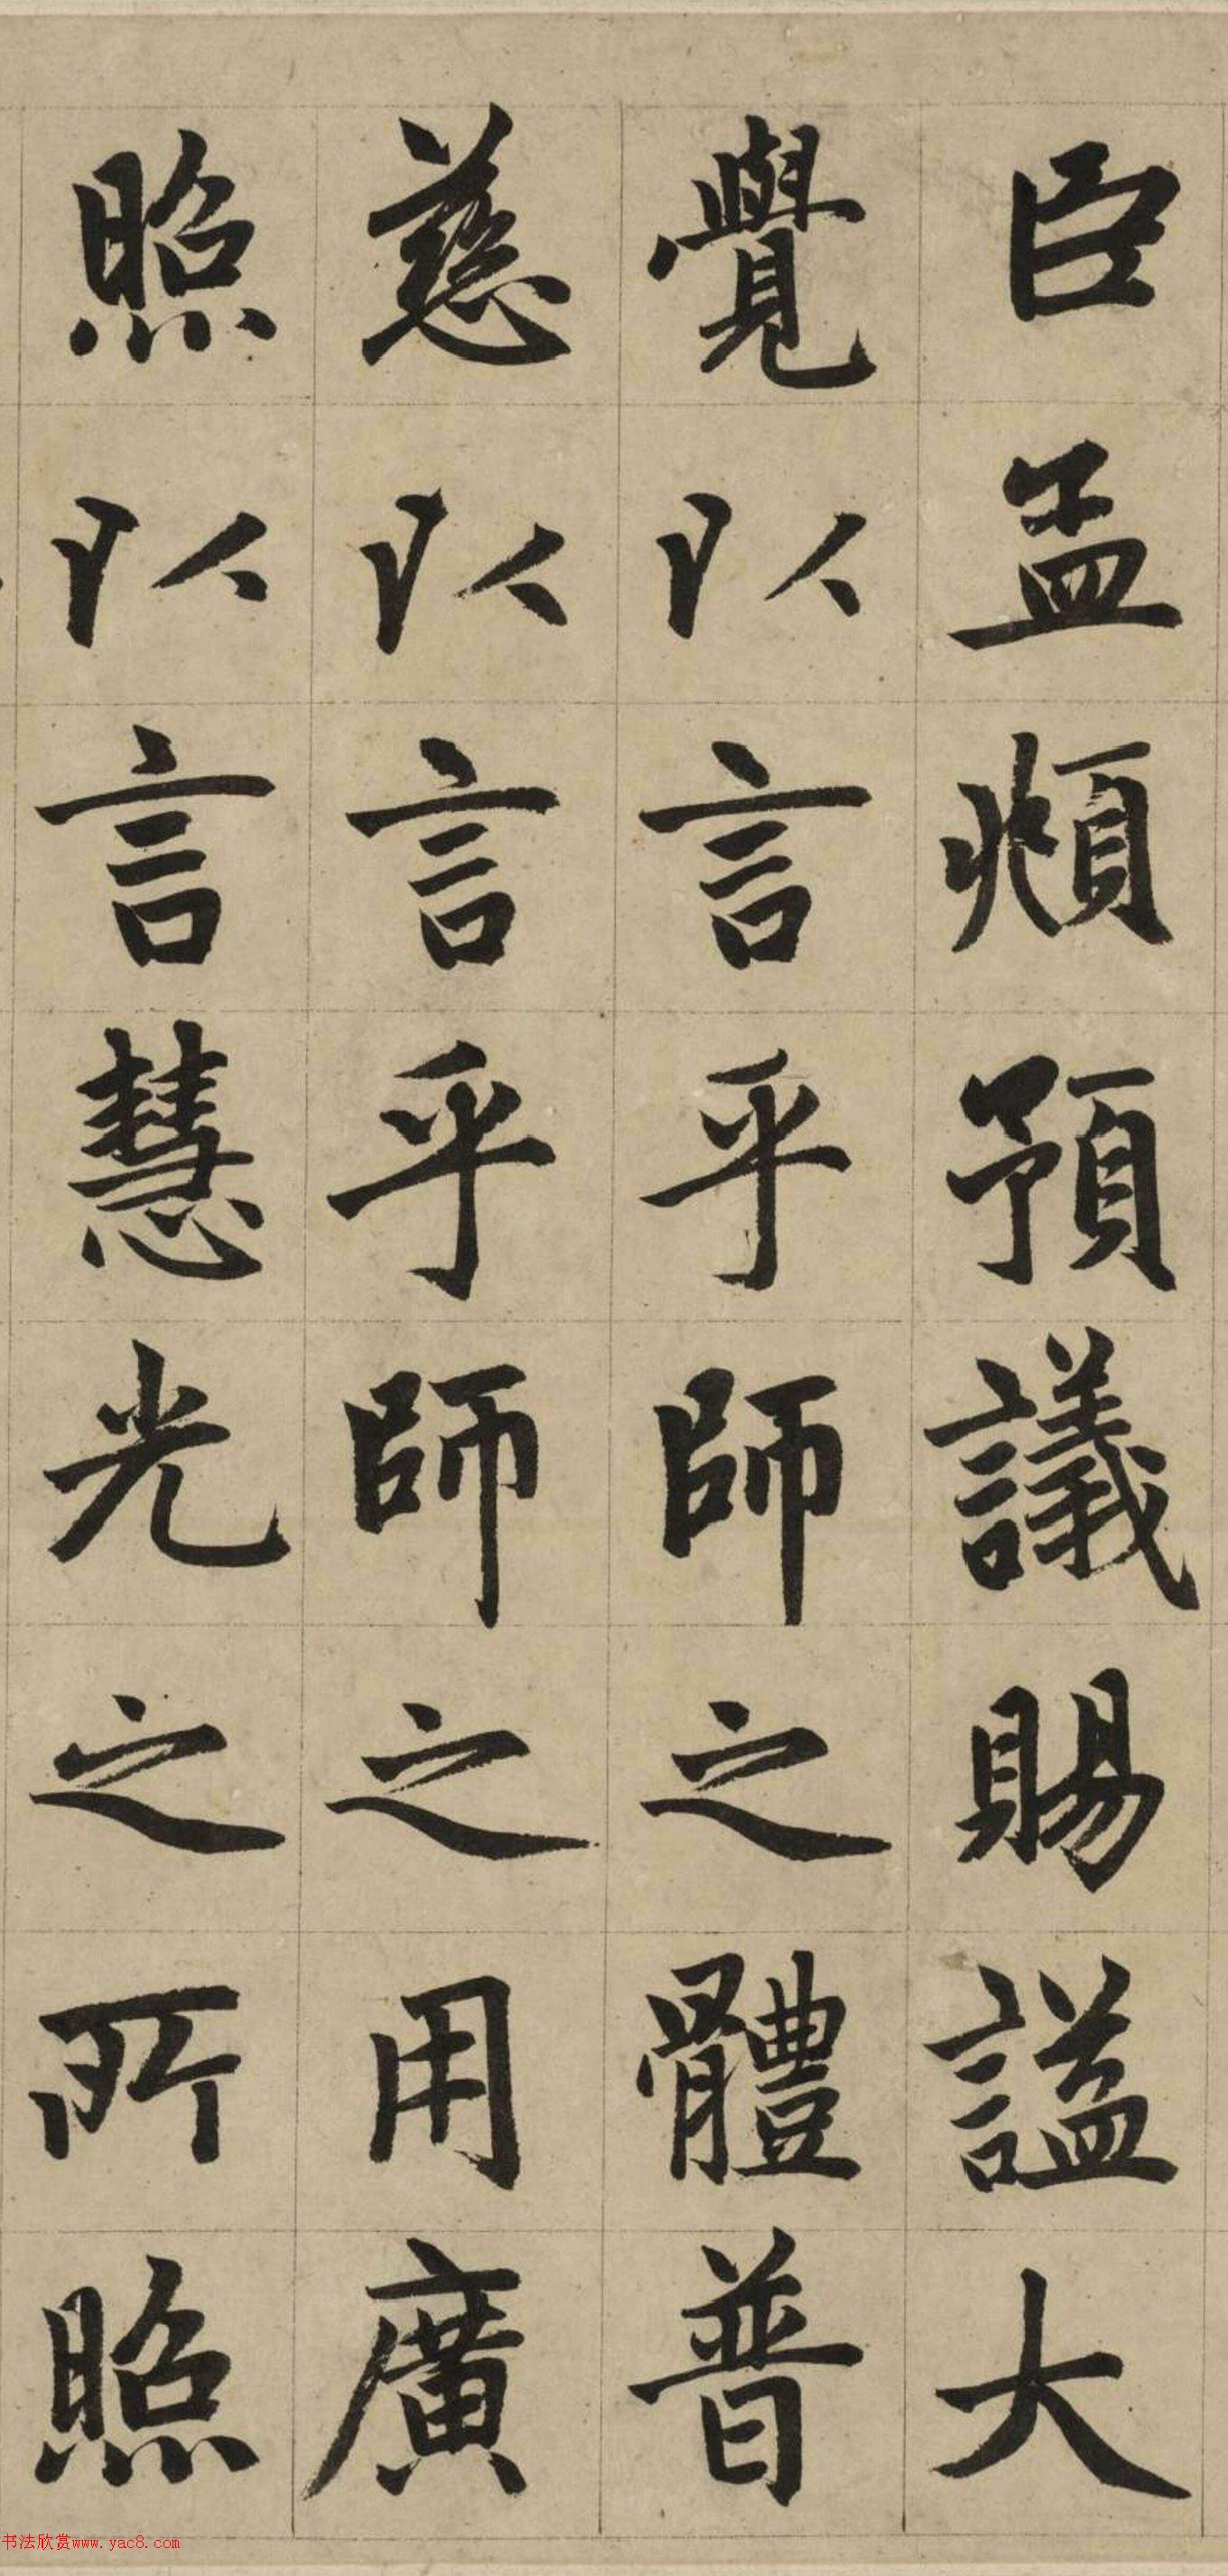 臣孟頫預議賜謚大
覺以言乎師之體普
慈以言乎師之用廣
照以言慧光之所照
书法欣赏www.yac8.com